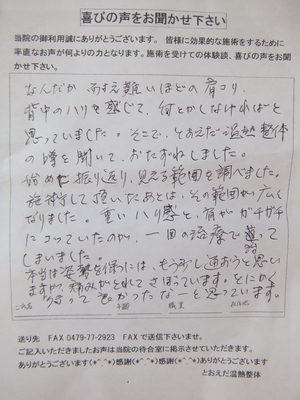 喜びの声をお聞かせ下さい
当院の御利用誠にありがとうございます。 皆様に効果的な施術をするために
率直なお声が何よりの力となります。施術を受けての体験談、喜びの声をお聞
かせ下さい。
なんだか 耐え難いほどの肩コリ、
背中のハリを感じて、何とかしなければと
思っていました。そこで、とおえだ温熱整体
の噂を聞いて、おたずねしました。
始めに振り返り、見える範囲を調べました。
施術して頂いたあとは、その範囲が広く
なりました。重いハリ感と、肩がガチガチ
にコっていたのが、一回の治療で治って
しまいました。
本当は姿勢を保つには、もう少し通おうと思い
ますが、痛みがとれてさぼっています。とにかく
よかったなーと思っています。
ご氏名 年齢 職業
送り先 FAX 0479-77-2923 FAX で送信下さいませ。
ご記入いただきましたお声は当院の待合室に掲示させていただきます。
ありがとうございます(*^_^*)感謝(*^_^*)感謝(*^_^*)ありがとうございます
とおえだ温熱整体